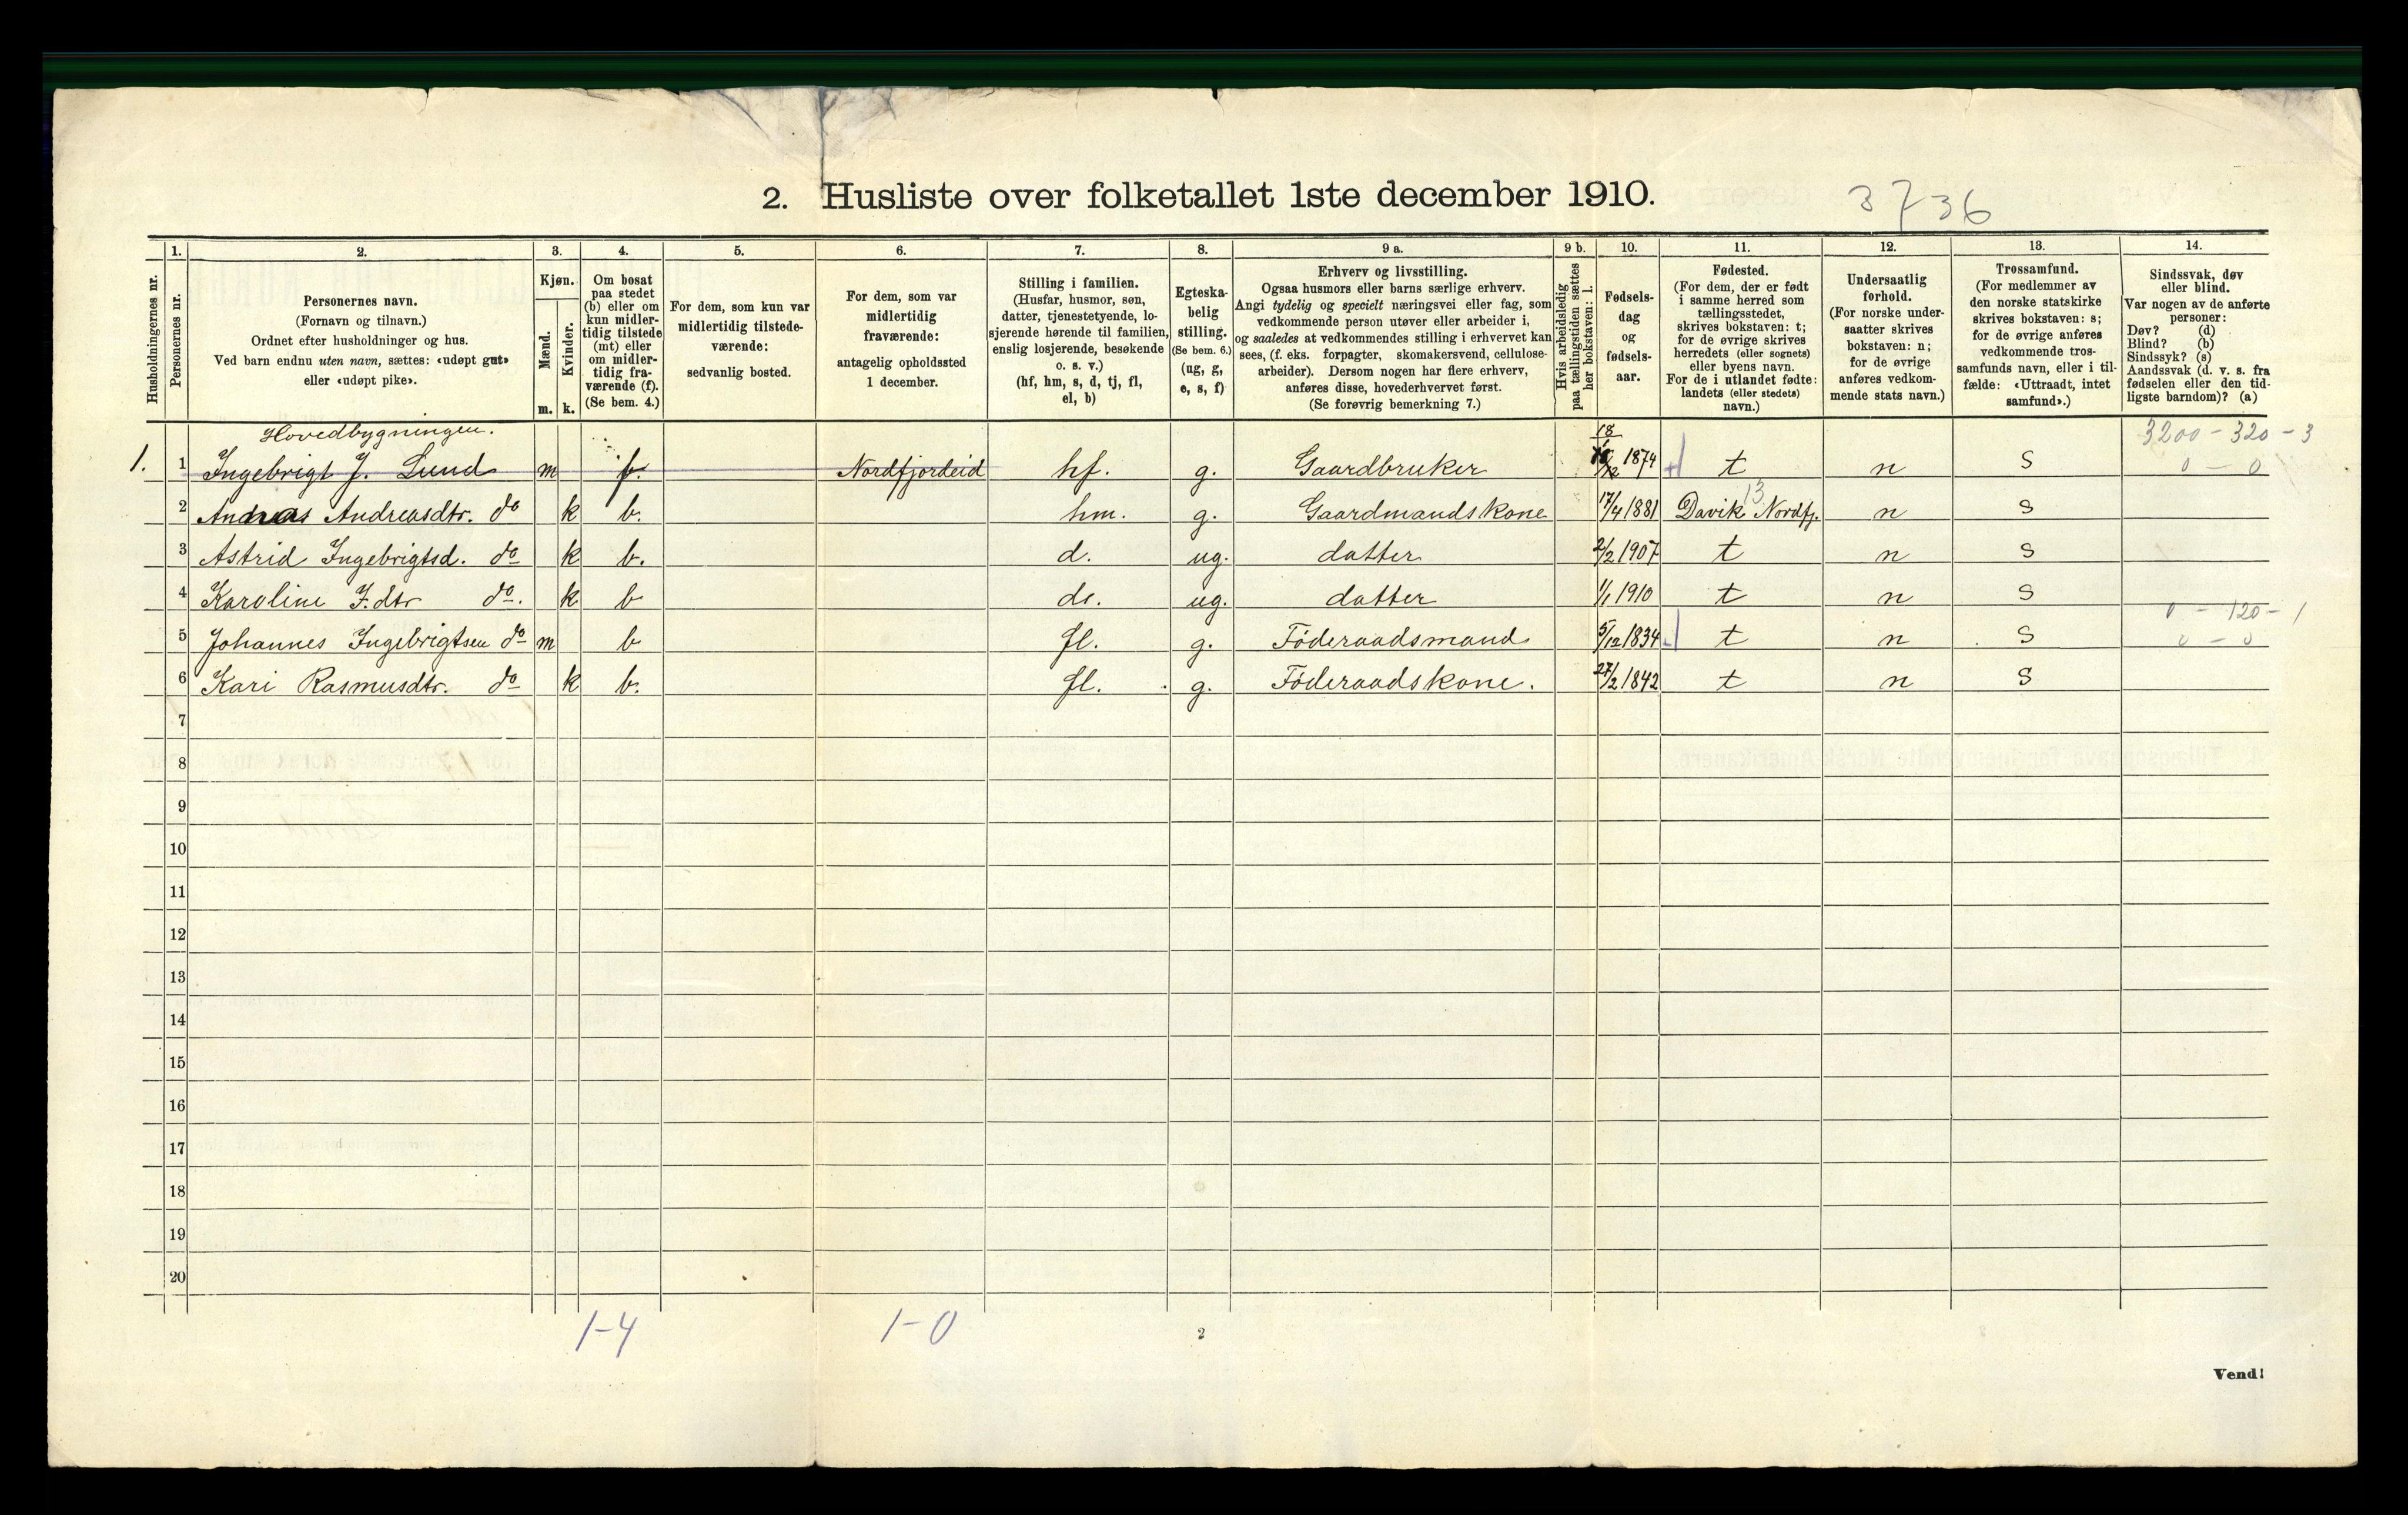 2. Husliste over folketallet 1ste december 1910.
3736
Husholdningernes nr.
1.
Personernes nr.
2.
Personernes navn.
(Fornavn og tilnavn.)
Ordnet efter husholdninger og hus.
Ved barn endnu uten navn, sættes: «udøpt gut»
eller «udøpt pike».
3.
Kjøn.
Mænd.
Kvinder.
m. k.
4.
Om bosat
paa stedet
(b) eller om
kun midler-
tidig tilstede
(mt) eller
om midler-
tidig fra-
værende (f).
(Se bem. 4.)
5.
For dem, som kun var
midlertidig tilstede-
værende:
sedvanlig bosted.
6.
For dem, som var
midlertidig
fraværende:
antagelig opholdssted
1 december.
7.
Stilling i familien.
(Husfar, husmor, søn,
datter, tjenestetyende, lo-
sjerende hørende til familien,
enslig losjerende, besøkende
o. s. v.)
(hf, hm, s, d, tj, fl,
el, b)
8.
Egteska-
belig
stilling.
(Se bem. 6.)
(ug, g,
e, s, f)
9 a.
Erhverv og livsstilling.
Ogsaa husmors eller barns særlige erhverv.
Angi tydelig og specielt næringsvei eller fag, som
vedkommende person utøver eller arbeider i,
og saaledes at vedkommendes stilling i erhvervet kan
sees, (f. eks. forpagter, skomakersvend, cellulose-
arbeider). Dersom nogen har flere erhverv,
anføres disse, hovederhvervet først.
(Se forøvrig bemerkning 7.)
9 b.
Hvis arbeidsledig
paa tællingstiden sættes
her bokstaven: l.
10.
Fødsels-
dag
og
fødsels-
aar.
11.
Fødested.
(For dem, der er født
i samme herred som
tællingsstedet,
skrives bokstaven: t;
for de øvrige skrives
herredets (eller sognets)
eller byens navn.
For de i utlandet fødte:
landets (eller stedets)
navn.)
12.
Undersaatlig
forhold.
(For norske under-
saatter skrives
bokstaven: n;
for de øvrige
anføres vedkom-
mende stats navn.)
13.
Trossamfund.
(For medlemmer av
den norske statskirke
skrives bokstaven: s;
for de øvrige anføres
vedkommende tros-
samfunds navn, eller i til-
fælde: «Uttraadt, intet
samfund».)
14.
Sindssvak, døv
eller blind.
Var nogen av de anførte
personer:
Døv? (d)
Blind? (b)
Sindssyk? (s)
Aandssvak (d. v. s. fra
fødselen eller den tid-
ligste barndom)? (a)
Hovedbygningen. 18 3200 - 320 - 3
1. 1 Ingebrigt J. Lund m f. Nordfjordeid hf. g. Gaardbruker /12 1874 t n s 0 - 0
2 Andreasdtr. do k b. hm. g. Gaardmandskone 17/4 1881 Davik Nordfj. 13 n s
3 Astrid Ingebrigtsd. do k b. d. ug. datter 2/2 1907 t n s
4 Karoline I.dtr do. k b d. ug. datter 1/1 1910 t n s
0 - 120 - 1
5 Johannes Ingebrigtsen do m b fl. g. Föderaadsmand 5/12 1834 t n s 0 - 0
6 Kari Rasmusdtr. do k b. fl. g. Föderaadskone. 27/2 1842 t n s
7
8
9
10
11
12
13
14
15
16
17
18
19
20
1-4 1-0
2
Vend!